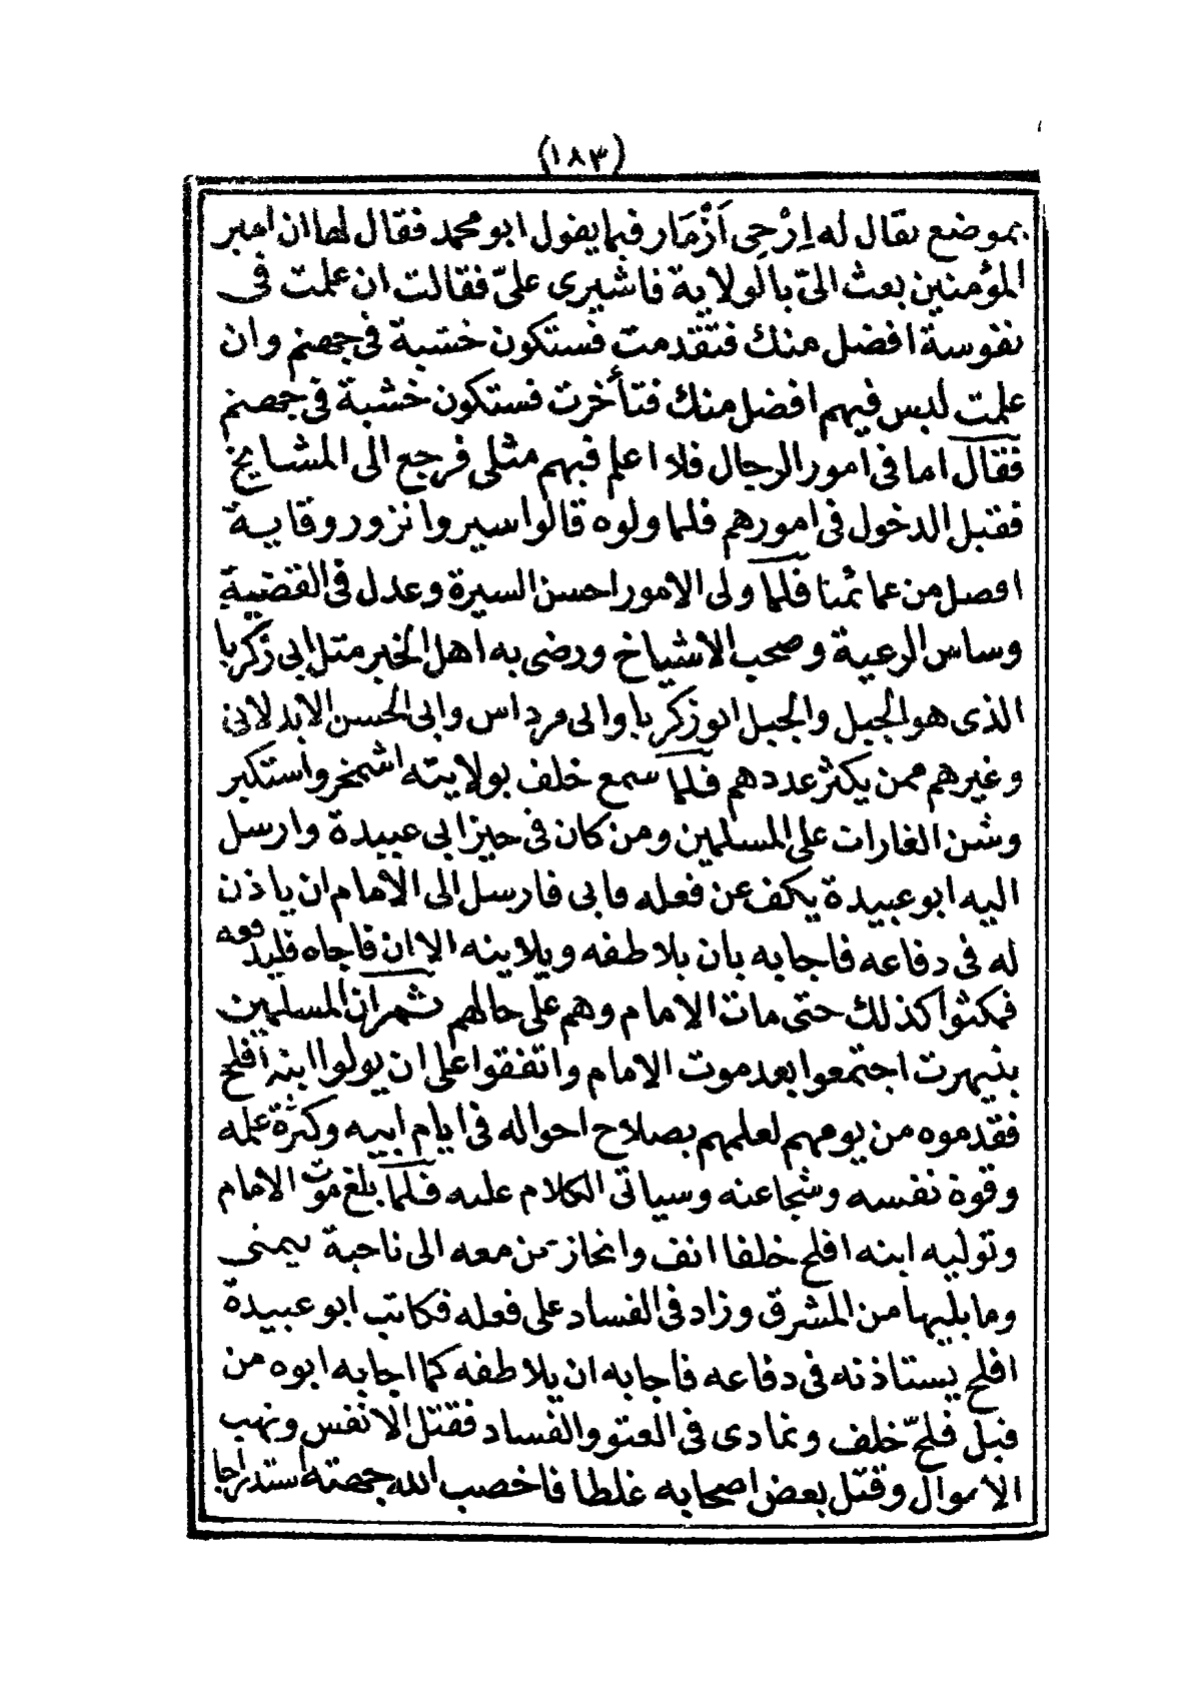 (١٨٣)
بموضع يقال له اِرْجِى اَزْمَار فيما يقول ابو محمد فقال لها ان امير
المؤمنين بعث الىّ بالولاية فاشيرى علىّ فقالت ان علمت فى
نفوسة افضل منك فتقدمت فستكون خشبة فى جهنم وان
علمت ليس فيهم افضل منك فتأخرت فستكون خشبة فى جهنم
فقال اما فى امور الرجال فلا اعلم فيهم مثلى فرجع الى المشايخ
فقبل الدخول فى امورهم فلما ولوه قالوا سيروا نزور وقاية
افضل من عمائمنا فلما ولى الامور احسن السيرة وعدل فى القضية
وساس الرعية وصحب الاشياخ ورضى به اهل الخير مثل ابى زكريا
الذى هو الجبل والجبل ابو زكريا وابى مرداس وابى الحسن الابدلانى
وغيرهم ممن يكثر عددهم فلما سمع خلف بولايته اشمخر واستكبر
وشن الغارات على المسلمين ومن كان فى حيز ابى عبيدة وارسل
اليه ابو عبيدة يكف عن فعله فابى فارسل الى الامام ان ياذن
له فى دفاعه فاجابه بان يلاطفه ويلاينه الا ان فاجاه فليدفعه
فمكثوا كذلك حتى مات الامام وهم على حالهم ثم ان المسلمين
بتيهرت اجتمعوا بعد موت الامام واتفقوا على ان يولوا ابنه افلح
فقدموه من يومهم لعلمهم بصلاح احواله فى ايام ابيه وكثرة علمه
وقوة نفسه وشجاعته وسياتى الكلام عليه فلما بلغ موت الامام
وتوليه ابنه افلح خلفا انف وانحاز بمن معه الى ناحية تيمتى
وما يليها من المشرق وزاد فى الفساد على فعله فكاتب ابو عبيدة
افلح يستاذنه فى دفاعه فاجابه ان يلاطفه كما اجابه ابوه من
قبل فلجّ خلف وتمادى فى العتو والفساد فقتل الانفس ونهب
الاموال وقتل بعض اصحابه غلطا فاخصب الله جهته استدراجا